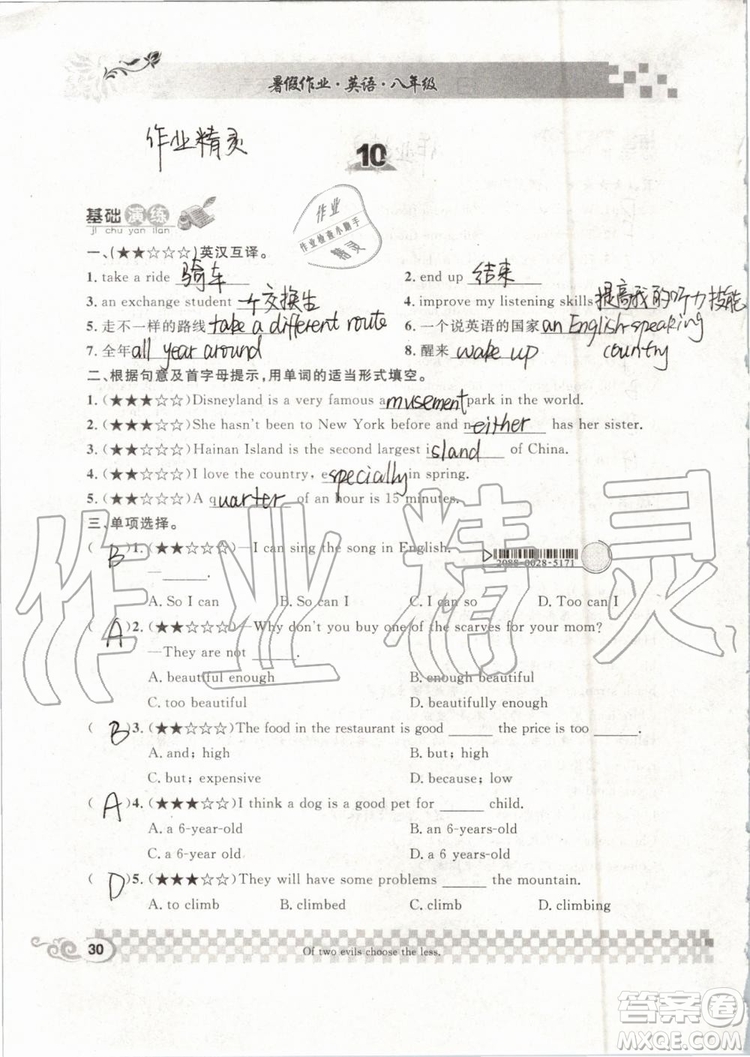 暑假作业·英语·八年级
作业精灵
10
作业
作业检查小助手
精灵
基础演练
ji chu yan lian
一、(★★☆☆☆)英汉互译。
1. take a ride 骑车 2. end up 结束
3. an exchange student 一个交换生 4. improve my listening skills 提高我的听力技能
5. 走不一样的路线 take a different route 6. 一个说英语的国家 an English-speaking country
7. 全年 all year around 8. 醒来 wake up
二、根据句意及首字母提示,用单词的适当形式填空。
1. (★★★☆☆)Disneyland is a very famous amusement park in the world.
2. (★★★☆☆)She hasn't been to New York before and neither has her sister.
3. (★★★☆☆)Hainan Island is the second largest island of China.
4. (★★★☆☆)I love the country, especially in spring.
5. (★★★☆☆)A quarter of an hour is 15 minutes.
三、单项选择。
( B )1. (★★☆☆☆)—I can sing the song in English.
2088-0028-5171
—______.
A. So I can B. So can I C. I can so D. Too can I
( A )2. (★★☆☆☆)—Why don't you buy one of the scarves for your mom?
—They are not ______.
A. beautiful enough B. enough beautiful
C. too beautiful D. beautifully enough
( B )3. (★★☆☆☆)The food in the restaurant is good ______ the price is too ______.
A. and; high B. but; high
C. but; expensive D. because; low
( A )4. (★★★☆☆)I think a dog is a good pet for ______ child.
A. a 6-year-old B. an 6-year-old
C. 6-year-old D. a 6-years-old
( D )5. (★★★☆☆)They will have some problems ______ the mountain.
A. to climb B. climbed C. climb D. climbing
30
Of two evils choose the less.
作业精灵
答案圈
MXQE.COM